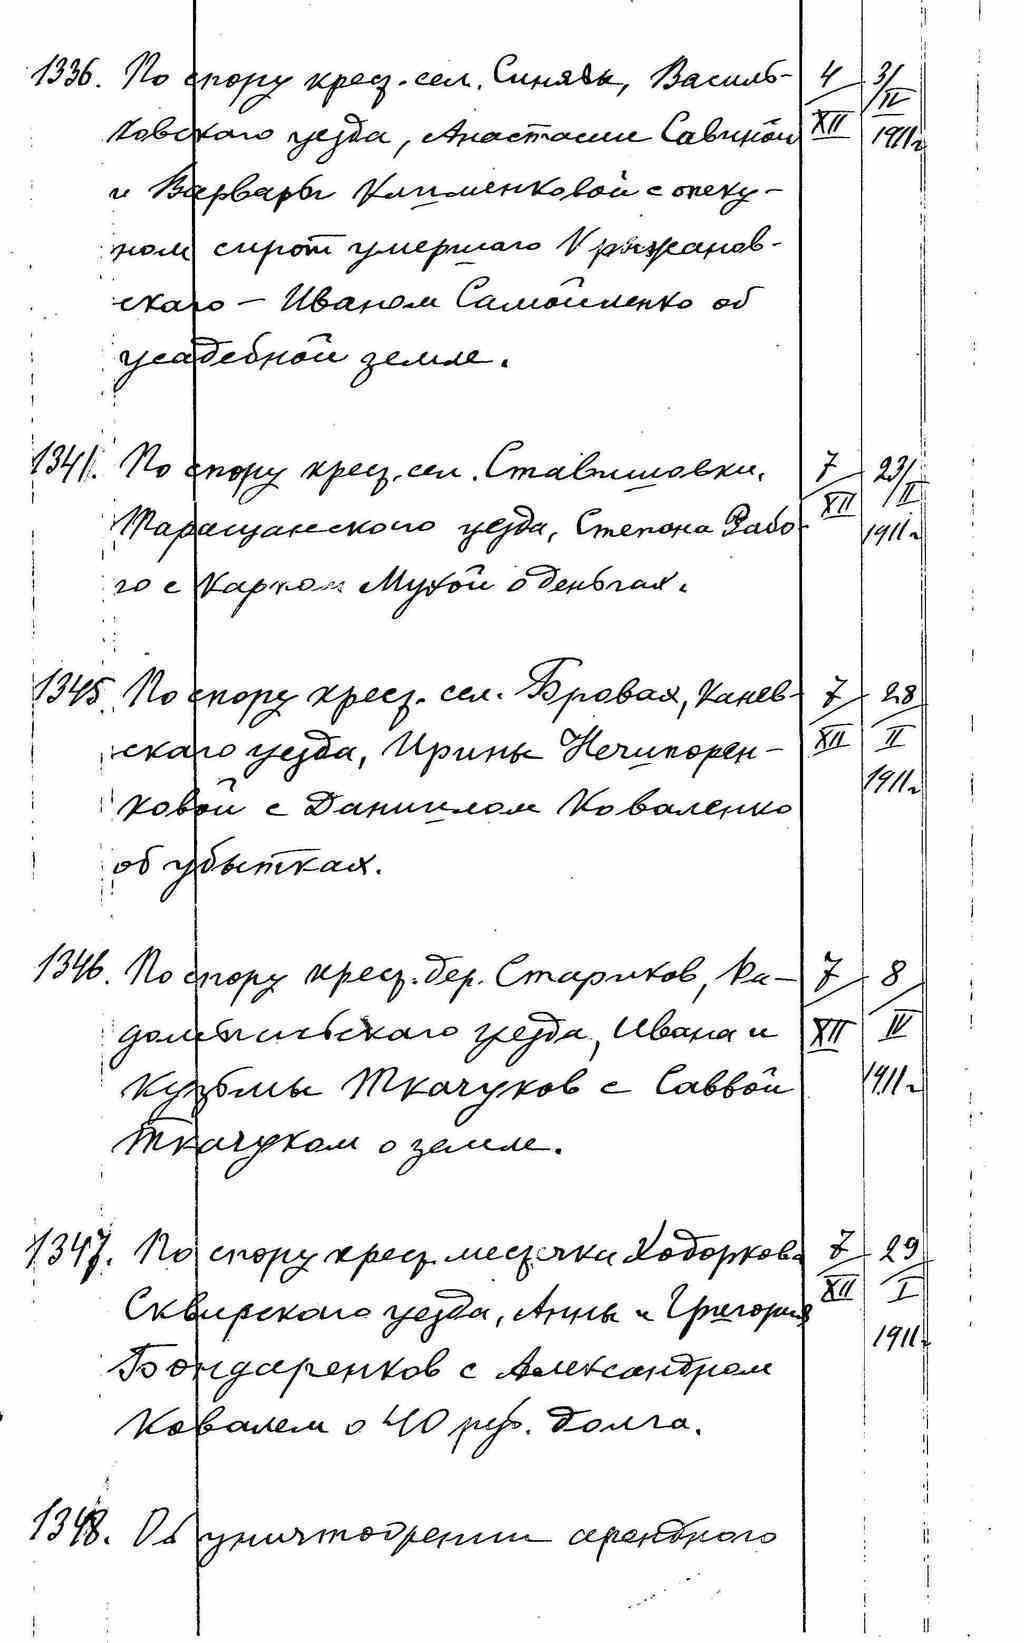 1336. По спору крест. сел. Синявы, Василь- 4 3/
ковского уезда, Анастасии Савиной XII IV 1911 г
и Варвары Клименковой с опеку-
ном сирот умершаго Кржжанов-
скаго — Иваном Самойленко об
усадебной земле.
1341. По спору крест. сел. Ставишовки, 7 23/
Таращанского уезда, Степана Рабо- XII II 1911 г
го с Карпом Мухой о деньгах.
1345. По спору крест. сел. Бровах, Канев- 7 28
скаго уезда, Ирины Нечипорен- XII II
ковой с Даниилом Коваленко 1911 г
об убытках.
1346. По спору крест. дер. Стариков, Ра- 7 8
домысльскаго уезда, Ивана и XII IV
Кузьмы Ткачуков с Саввой 1911 г
Ткачуком о земле.
1347. По спору крест. местечка Ходоркова 7 29
Сквирскаго уезда, Анны и Григория XII I
Бондаренков с Александром 1911 г
Ковалем о 40 руб. долга.
1348. Об уничтожении арендного